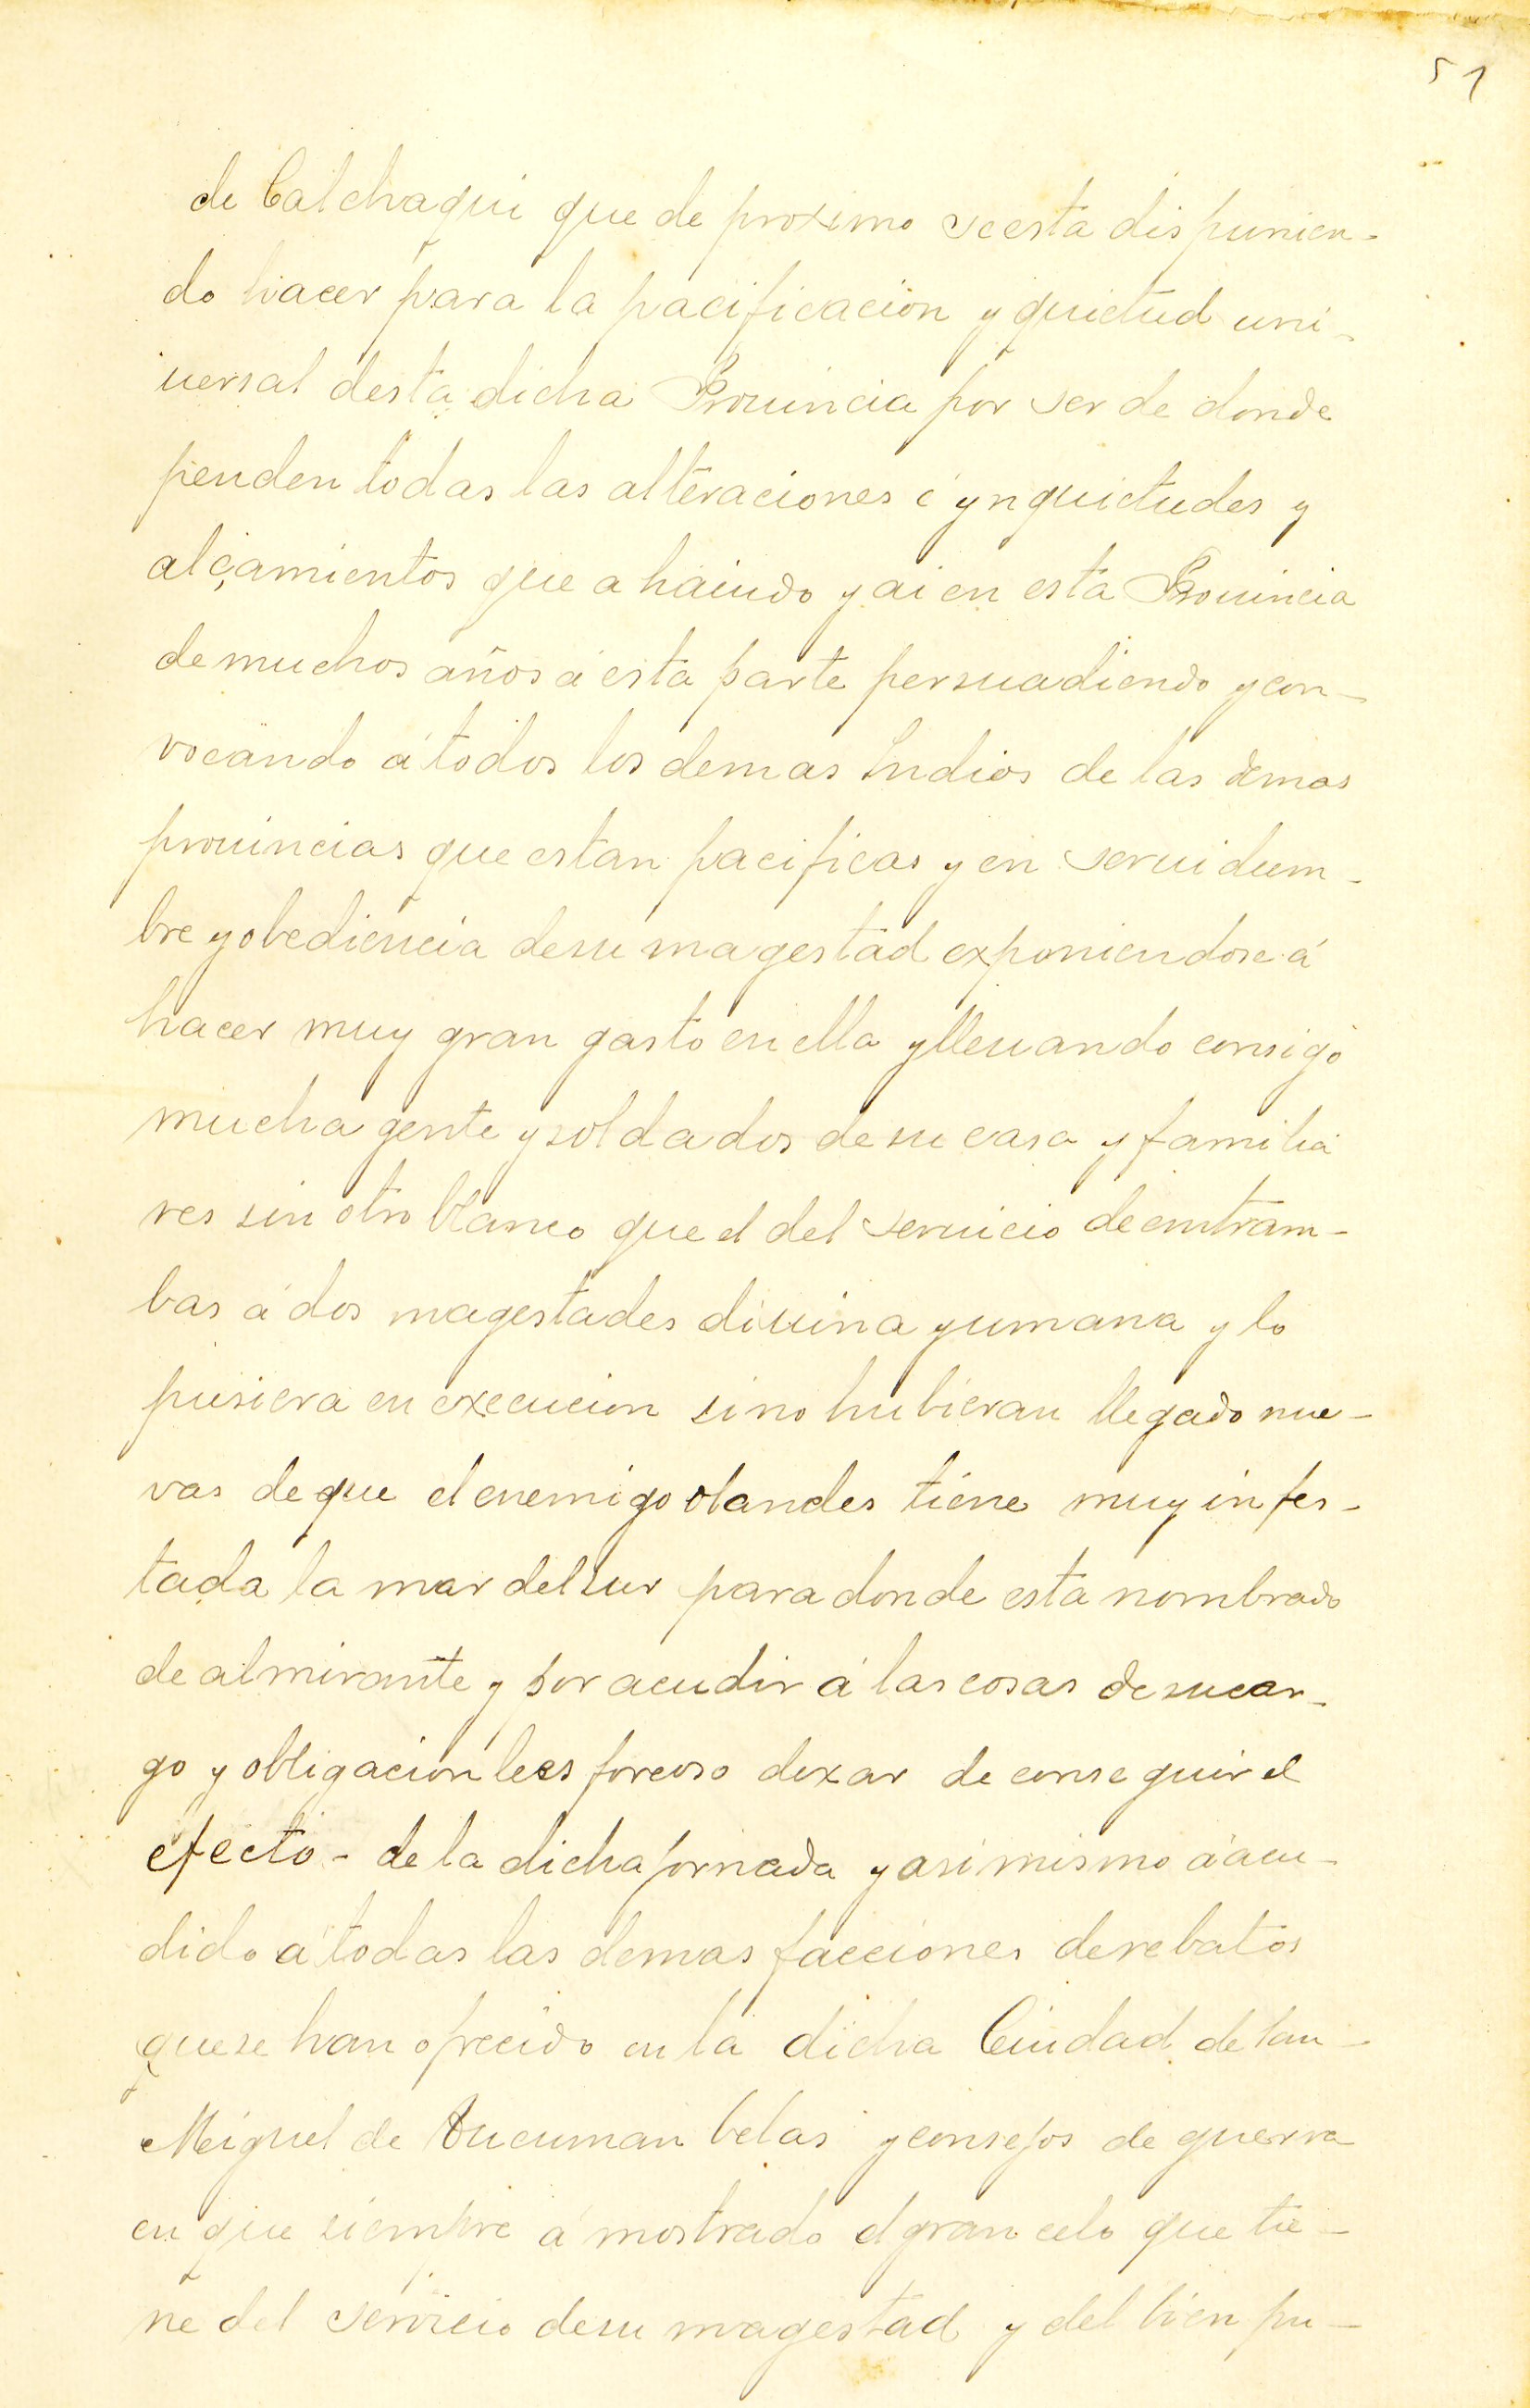 51
de Calchaqui que de proximo se esta disponien-
do hacer para la pacificacion y quietud uni-
uersal desta dicha Prouincia por ser de donde
penden todas las alteraciones é ynquietudes y
alçamientos que a hauido y ai en esta Prouincia
de muchos años á esta parte persuadiendo y con-
vocando á todos los demas Indios de las demas
prouincias que estan pacificas y en seruidum-
bre y obediencia de su magestad exponiendose á
hacer muy gran gasto en ella y lleuando consigo
mucha gente y soldados de su casa y familia
res sin otro blanco que el del seruicio de entram-
bas á dos magestades diuina y umana y lo
pusiera en execucion si no hubieran llegado nue-
vas de que el enemigo olandes tiene muy infes-
tada la mar del sur para donde esta nombrado
de almirante y por acudir á las cosas de su car-
go y obligacion le es forcoso dexar de conseguir el
efecto - de la dicha jornada y asi mismo á acu-
dido á todas las demas facciones de rebatos
que se han ofrecido en la dicha Ciudad de san
Miguel de Tucuman belas y consejos de guerra
en que siempre á mostrado el gran celo que tie-
ne del servicio de su magestad y del bien pu-